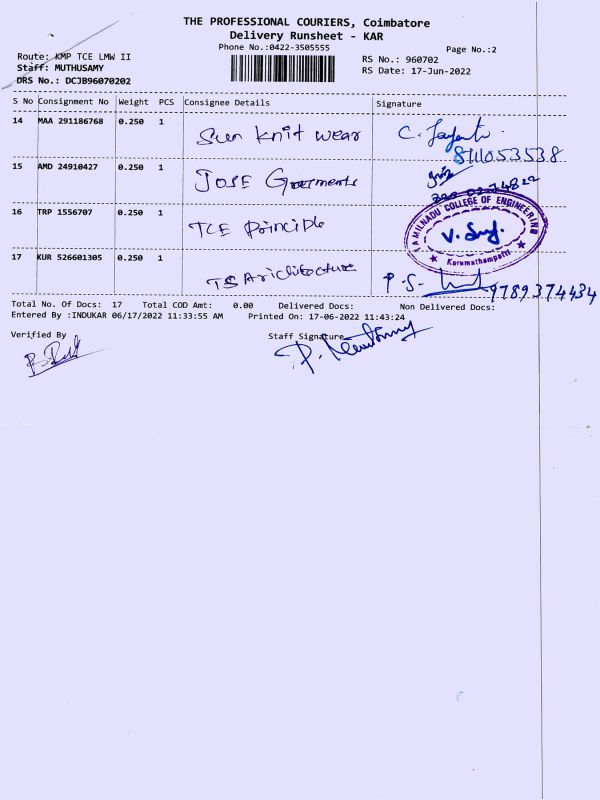 THE PROFESSIONAL COURIERS, Coimbatore
Delivery Runsheet - KAR
Phone No.:0422-3505555
Page No.:2
Route: KMP TCE LMW II
RS No.: 960702
Staff: MUTHUSAMY
RS Date: 17-Jun-2022
DRS No.: DCJB96070202
S No Consignment No Weight PCS Consignee Details Signature
14 MAA 291186768 0.250 1 Sun Knit Wear C.
8111053538
15 AMD 24910427 0.250 1 JOSE Garments
16 TRP 1556707 0.250 1 TCE Principle
TAMILNADU COLLEGE OF ENGINEERING
Karumathampatti
17 KUR 526601305 0.250 1 TS Architecture P.S. 9789374434
Total No. Of Docs: 17 Total COD Amt: 0.00 Delivered Docs: Non Delivered Docs:
Entered By :INDUKAR 06/17/2022 11:33:55 AM Printed On: 17-06-2022 11:43:24
Verified By Staff Signature